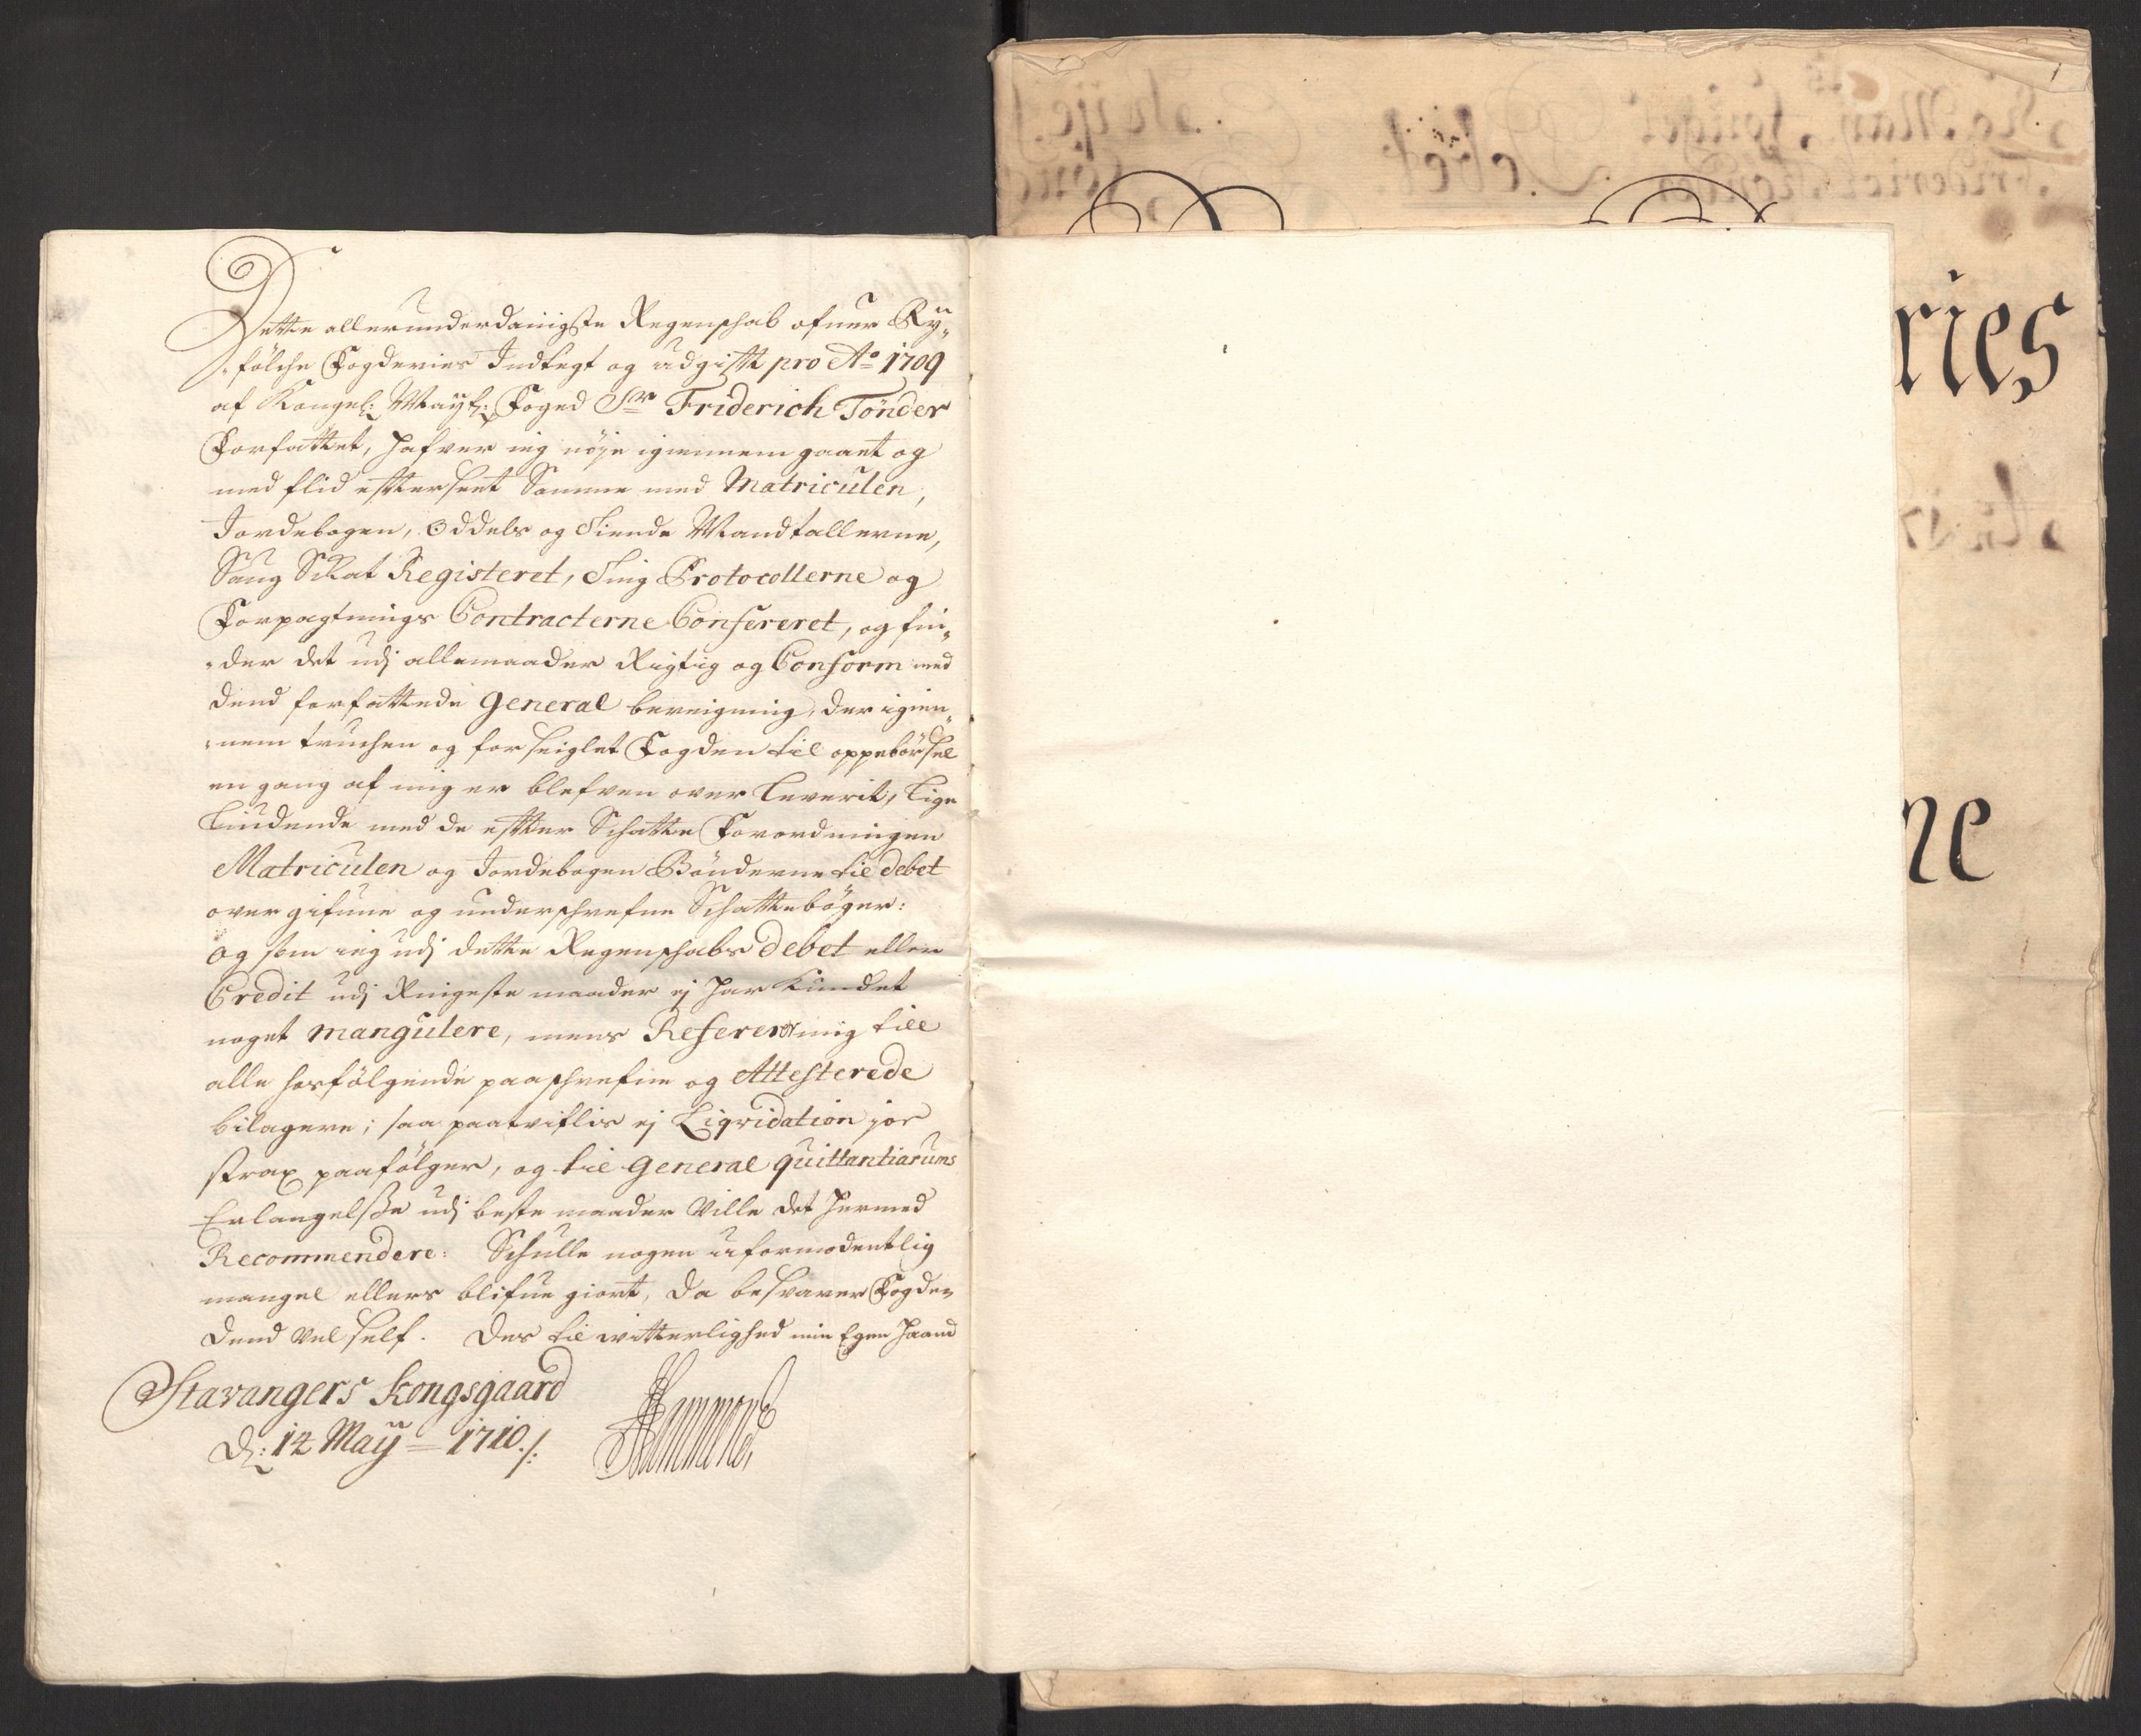 Dette allerunderdanigste Regenschab ofuer Ry„
„fölche Fogderies Indtegt og udgifft pro Ao 1709
af Kongel: Mayts: Foged Sr Friderich Tönder
Forfattet, hafver ieg nöje igiennem gaaet og
med flid effterseet Samme med Matriculen,
Jordebogen, Oddels og Tiende Mandtallerne,
Saug Skat Registeret, Ting Protocollerne og
Forpagtnings Contracterne Confereret, og fin„
„der det udj allemaader Rigtig og Conform med
dend forfattede General bereigning, der igien„
„nem truchen og forseiglet Fogden til oppebörsel
en gang af mig er blefven over leverit, lige
liudende med de effter Schatte Forordningen
Matriculen og Jordebogen Bönderne til debet
over gifune og underschrefne Schatteböger:
og som ieg udj dette Regenschabs debet eller
Credit udj Ringeste maader ej har kundet
noget mangulere, mens Referer mig till
alle hosfölgende paaschrefne og Attesterede
bilagere; saa paatviflis ej Liqvidation jo
strax paafölger, og til General quittantiarums
Erlangelsse udj beste maader Ville det hermed
Recommendere: Schulle nogen uformodentlig
mangel ellers blifue giort, da besvarer Fogden
dend vel self. Des til witterlighed min Egen Haand
Stavangers Kongsgaard
d: 12 Maÿ 1710 ./.
Hammond
ries
ne